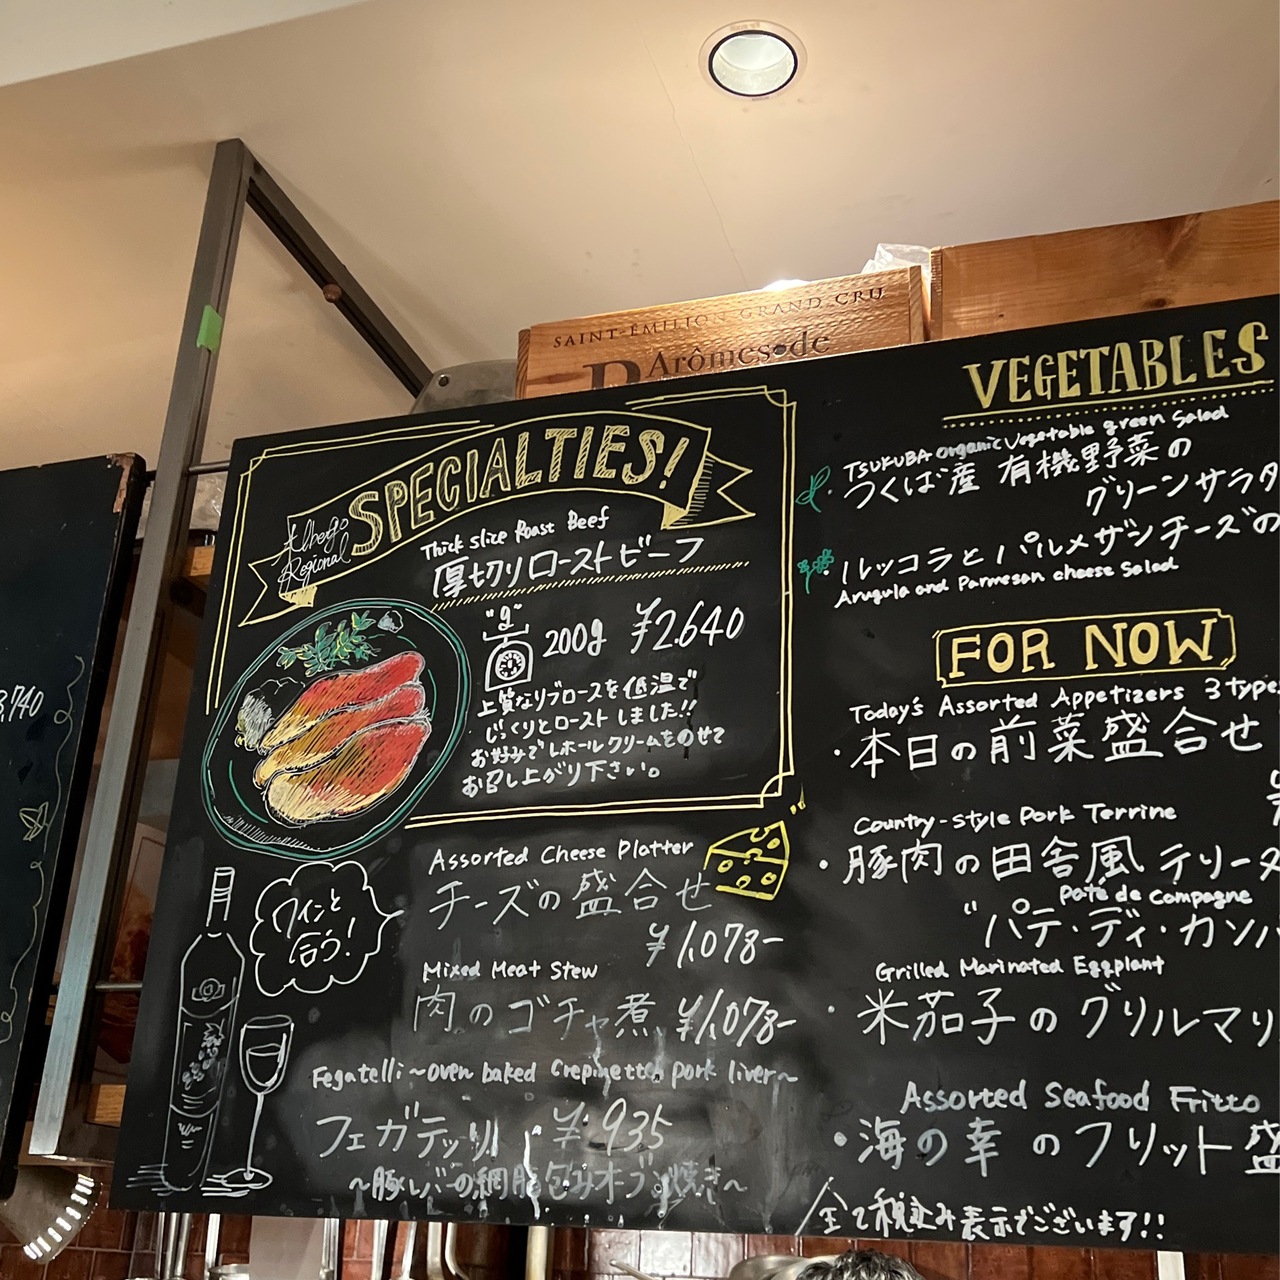 SAINT-ÉMILION GRAND CRU
Arômes de
3,740
SPECIALTIES!
Albergo
Regional
Thick slice Roast Beef
厚切りローストビーフ
"g"
200g ¥2.640
上質なリブロースを低温で
じっくりとローストしました!!
お好みでレホールクリームをのせて
お召し上がり下さい。
Assorted Cheese Platter
チーズの盛合せ
¥1,078-
Mixed Meat Stew
肉のゴチャ煮 ¥1,078-
Fegatelli~oven baked Crepinette pork liver~
フェガテッリ ¥935
~豚レバーの網脂包みオーブン焼き~
ワインと
合う!
VEGETABLES
TSUKUBA organic Vegetable green Salad
つくば産 有機野菜の
グリーンサラダ
ルッコラとパルメザンチーズの
Arugula and Parmesan cheese Salad
FOR NOW
Today's Assorted Appetizers 3 types
・本日の前菜盛合せ
Country-style Pork Terrine
・豚肉の田舎風テリーヌ
Paté de Compagne
"パテ・ディ・カンパ
Grilled Marinated Eggplant
・米茄子のグリルマリ
Assorted Seafood Fritto
・海の幸のフリット盛
全て税込み表示でございます!!